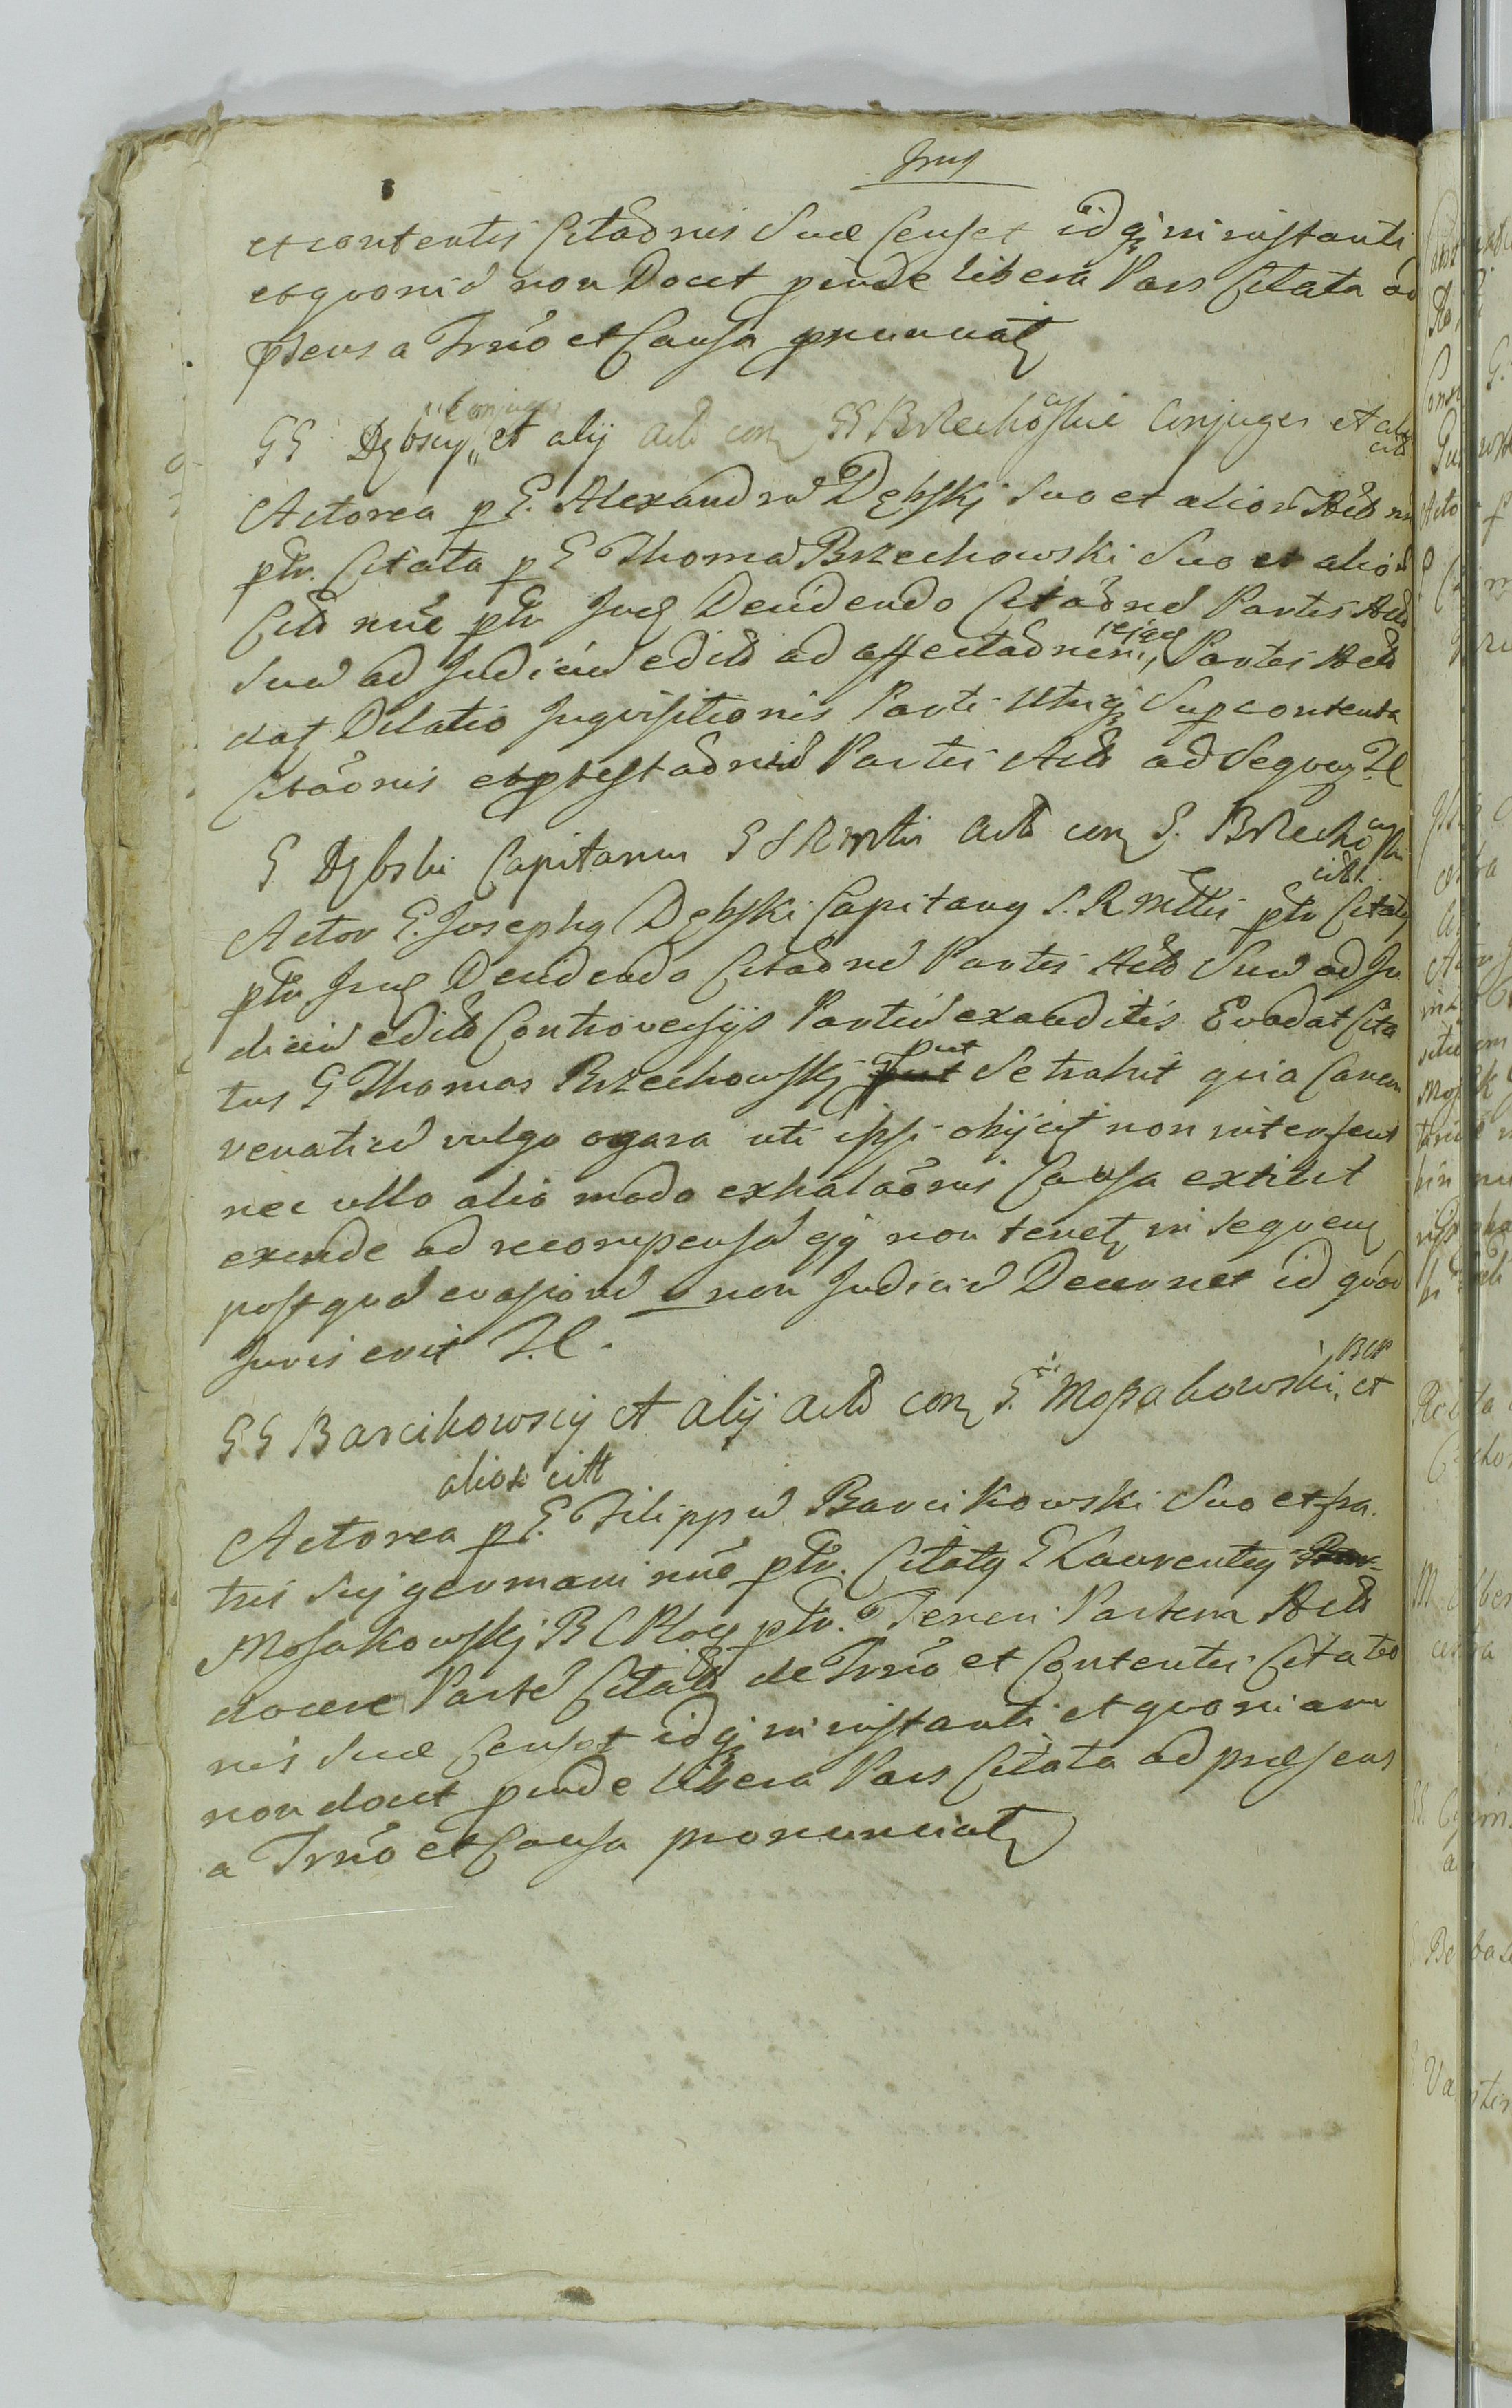 et contentis Citaõnis Suæ Censet idq; in instanti
et quoniã non Docet proinde libera Pars Citata ad
præsens a Trnõ et Causa pnunciat
GG Dębscy Conjuges et alij act con GG Brzechowskie Conjuges et alios citt
Actorea p G. Alexandrũ Dębski Suo et alior Act nõe
ptr. Citata p G Thomã Brzechowski Suo et aliorũ
Citt nõe ptr Jud Decidendo Citaõnẽ Partis Act
Suã ad Judiciũ edit ad affectaõnem ejq Partis Act
dat Dilatio Inquisitionis Parti utriq; Sup contenta
Citaõnis et ptestaõniũ Partis Act ad Sequen T.C.
G Dębski Capitanus S R Mttis act con G. Brzechowski citt.
Actor G. Josephq Dębski Capitanq S. R Mttis ptr Citatq
ptr Jud Decidendo Citaõnẽ Partis Act Suã ad Ju
diciũ edit Controversijs Partiũ exauditis Evadat Cita
tus G Thomas Brzechowski put Se trahit quia Canem
venaticũ vulgo ogara uti ipsi obijcit non interfecit
nec ullo alio modo exhalaõnis Causa extitit
exinde ad recompensã ejq non tenet in sequen
post quã evasionẽ non Judiciũ Decernet id quod
Juris erit T.C.
GG Barcikowscy et alij act con G. Mossakowski BCP et
alios citt
Actorea p G. Filippũ Barcikowski Suo et fra
tris Sui germani nõe ptr. Citatq G Laurentiq
Mosakowski B C Ploc ptr. Teneri Partem Act
docere Partẽ Citatã de Trnõ et Contentis Citatio
nis Suæ Censet idq; in instanti et quoniam
non docet proinde libera Pars Citata ad præsens
a Trnõ et Causa pronunciat